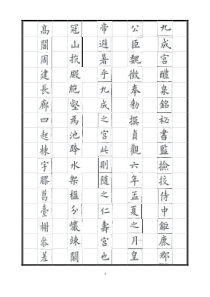 九成宮醴泉銘秘書監撿挍侍中鉅鹿郡
公臣魏徵奉勑撰貞觀六年孟夏之月皇
帝避暑乎九成之宮此則隨之仁壽宮也
冠山抗殿絕壑為池跨水架楹分巖竦闕
高閣周建長廊四起棟宇膠葛臺榭參差